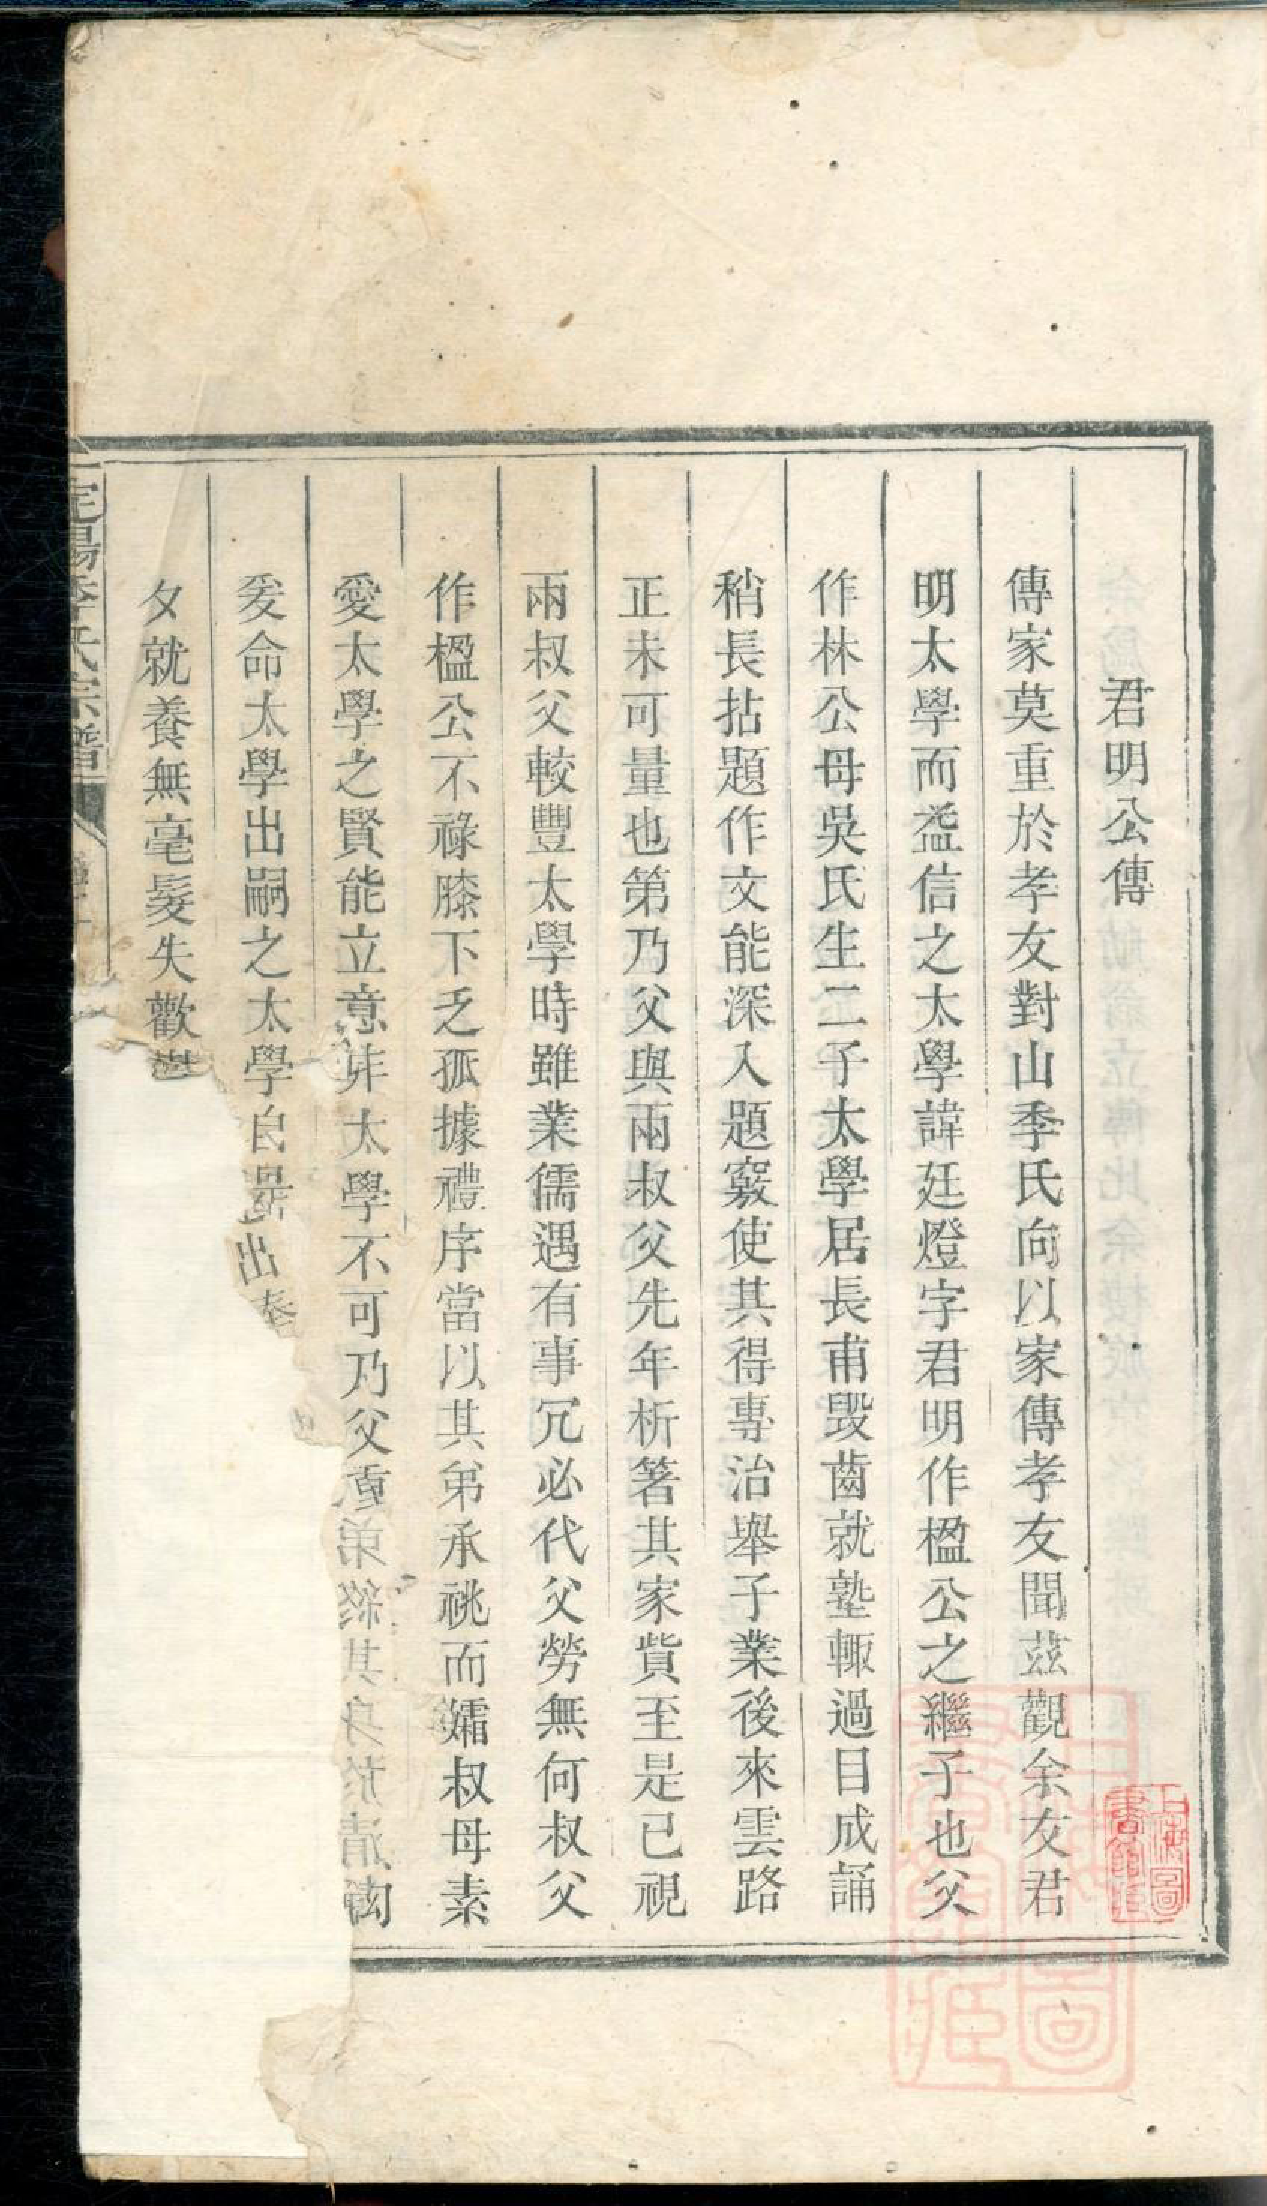 君明公傳
傳家莫重於孝友對山季氏向以家傳孝友聞茲觀余友君
明太學而益信之太學諱廷燈字君明作楹公之繼子也父
作林公母吳氏生二子太學居長甫毀齒就塾輙過目成誦
稍長拈題作文能深入題竅使其得專治舉子業後來雲路
正未可量也第乃父與兩叔父先年析箸其家貲至是已視
兩叔父較豐太學時雖業儒遇有事冗必代父勞無何叔父
作楹公不祿膝下乏孤據禮序當以其弟承祧而孀叔母素
愛太學之賢能立意非太學不可乃父重弟終其身於清
爰命太學出嗣之太學自是出
夕就養無毫髮失歡
定陽季氏宗譜
上海圖書館藏
上海圖書館藏